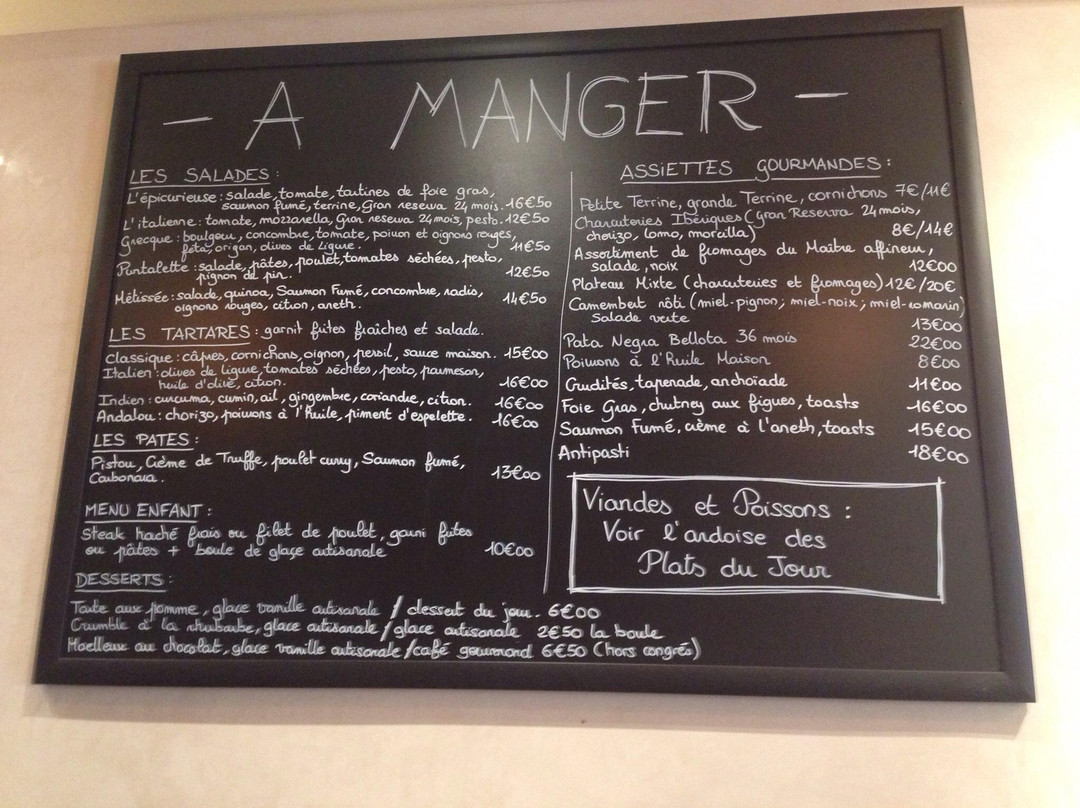 - A MANGER -
LES SALADES :
L'épicurieuse : salade, tomate, tartines de foie gras,
saumon fumé, terrine, Gran reserva 24 mois. 16€50
L'italienne : tomate, mozzarella, Gran reserva 24 mois, pesto. 12€50
Grecque : boulgour, concombre, tomate, poivron et oignons rouges,
feta, origan, olives de Ligurie. 11€50
Puntalette : salade, pâtes, poulet, tomates séchées, pesto,
pignon de pin. 12€50
Métissée : salade, quinoa, Saumon Fumé, concombre, radis,
oignons rouges, citron, aneth. 14€50
LES TARTARES : garnit frites fraîches et salade.
Classique : câpres, cornichons, oignon, persil, sauce maison. 15€00
Italien : olives de ligurie, tomates séchées, pesto, parmesan,
huile d'olive, citron. 16€00
Indien : curcuma, cumin, ail, gingembre, coriandre, citron. 16€00
Andalou : chorizo, poivrons à l'huile, piment d'espelette. 16€00
LES PATES :
Pistou, Crème de Truffe, poulet curry, Saumon fumé,
Carbonara. 13€00
MENU ENFANT :
Steak haché frais ou filet de poulet, garni frites
ou pâtes + boule de glace artisanale 10€00
DESSERTS :
Tarte aux pomme, glace vanille artisanale / dessert du jour. 6€00
Crumble à la rhubarbe, glace artisanale / glace artisanale 2€50 la boule
Moelleux au chocolat, glace vanille artisanale / café gourmand 6€50 (Hors congrés)
ASSIETTES GOURMANDES :
Petite Terrine, grande Terrine, cornichons 7€/11€
Charcuteries Ibériques (Gran Reserva 24 mois,
chorizo, lomo, morcilla) 8€/14€
Assortiment de fromages du Maître affineur,
salade, noix 12€00
Plateau Mixte (charcuteries et fromages) 12€/20€
Camembert rôti (miel-pignon; miel-noix; miel-romarin)
Salade verte 13€00
Pata Negra Bellota 36 mois 22€00
Poivrons à l'huile Maison 8€00
Crudités, tapenade, anchoïade 11€00
Foie Gras, chutney aux figues, toasts 16€00
Saumon Fumé, crème à l'aneth, toasts 15€00
Antipasti 18€00
Viandes et Poissons :
Voir l'ardoise des
Plats du Jour